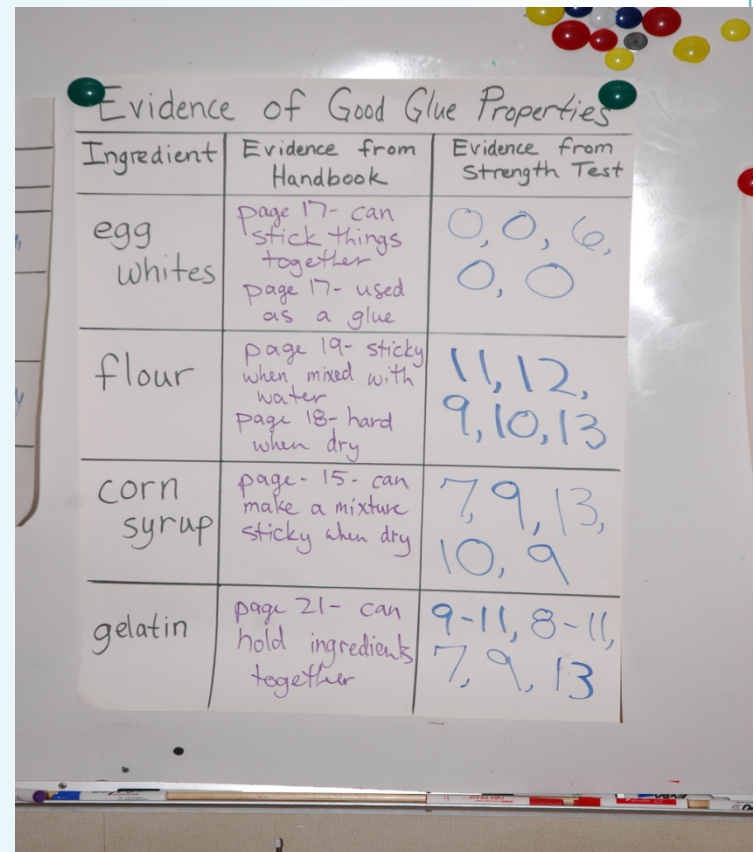 Evidence of Good Glue Properties
Ingredient
Evidence from
Handbook
Evidence from
Strength Test
egg
whites
page 17- can
stick things
together
page 17- used
as a glue
0, 0, 6,
0, 0
flour
page 19- sticky
when mixed with
water
page 18- hard
when dry
11, 12,
9, 10, 13
corn
syrup
page- 15- can
make a mixture
sticky when dry
7, 9, 13,
10, 9
gelatin
page 21- can
hold ingredients
together
9-11, 8-11,
7, 9, 13